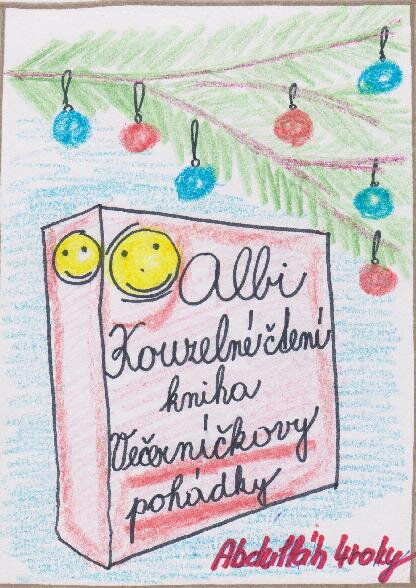 albi
Kouzelné čtení
kniha
Večerníčkovy
pohádky
Abdulláh 4roky